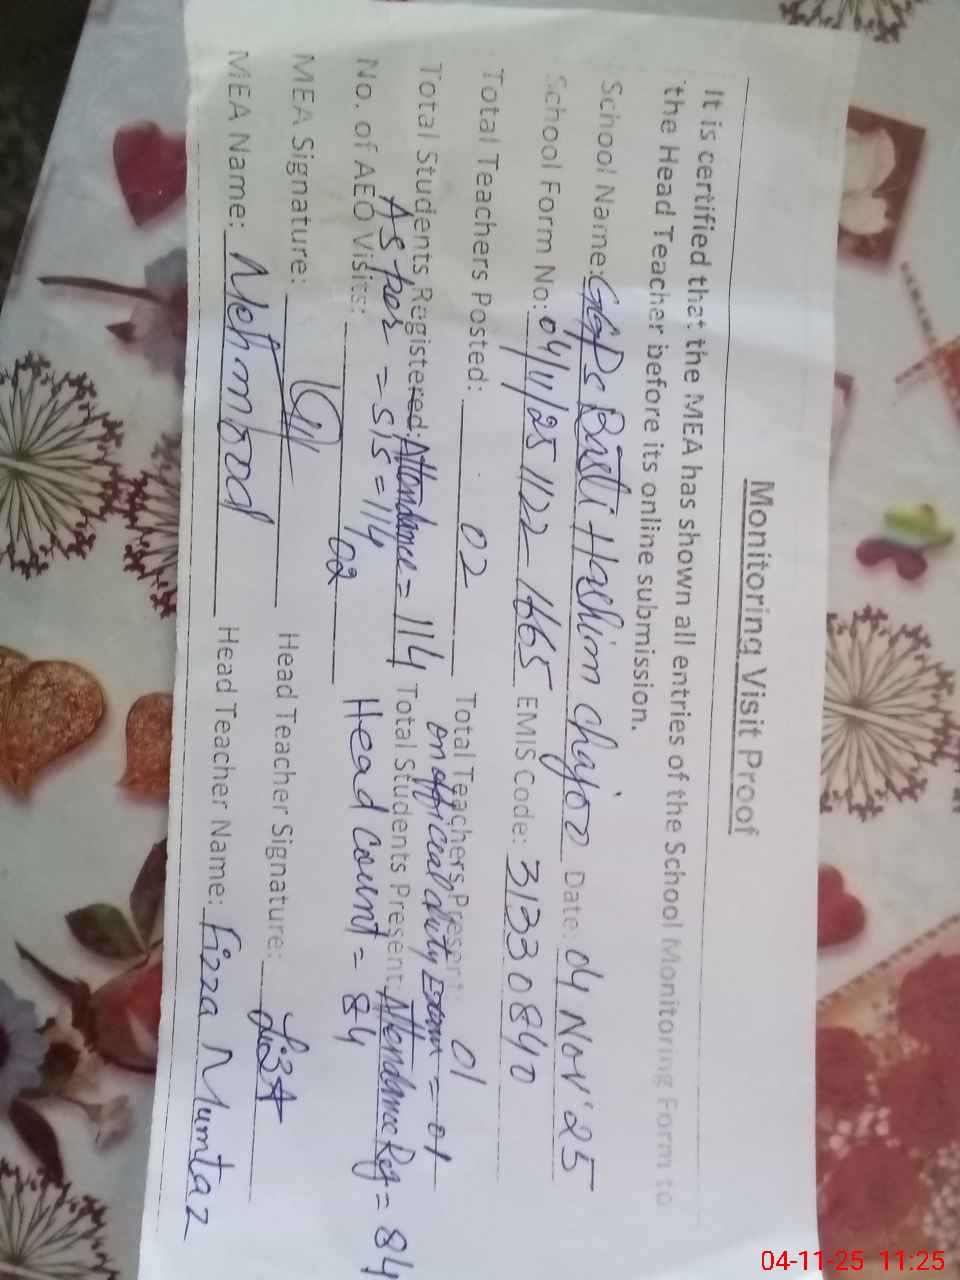 Monitoring Visit Proof
It is certified that the MEA has shown all entries of the School Monitoring Form to
the Head Teacher before its online submission.
School Name: GGPS Basti Hashim chajoo Date: 04 Nov'25
School Form No: 04/11/25 1122-1665 EMIS Code: 31330840
Total Teachers Posted: 02 Total Teachers Present: 01
on official duty Exam = 01
Total Students Registered: Attendance = 114 Total Students Present: Attendance Reg = 84
As per = SIS = 114 Head count = 84
No. of AEO Visits: 02
MEA Signature: Head Teacher Signature:
MEA Name: Mehmood Head Teacher Name: Fizza Mumtaz
04-11-25 11:25